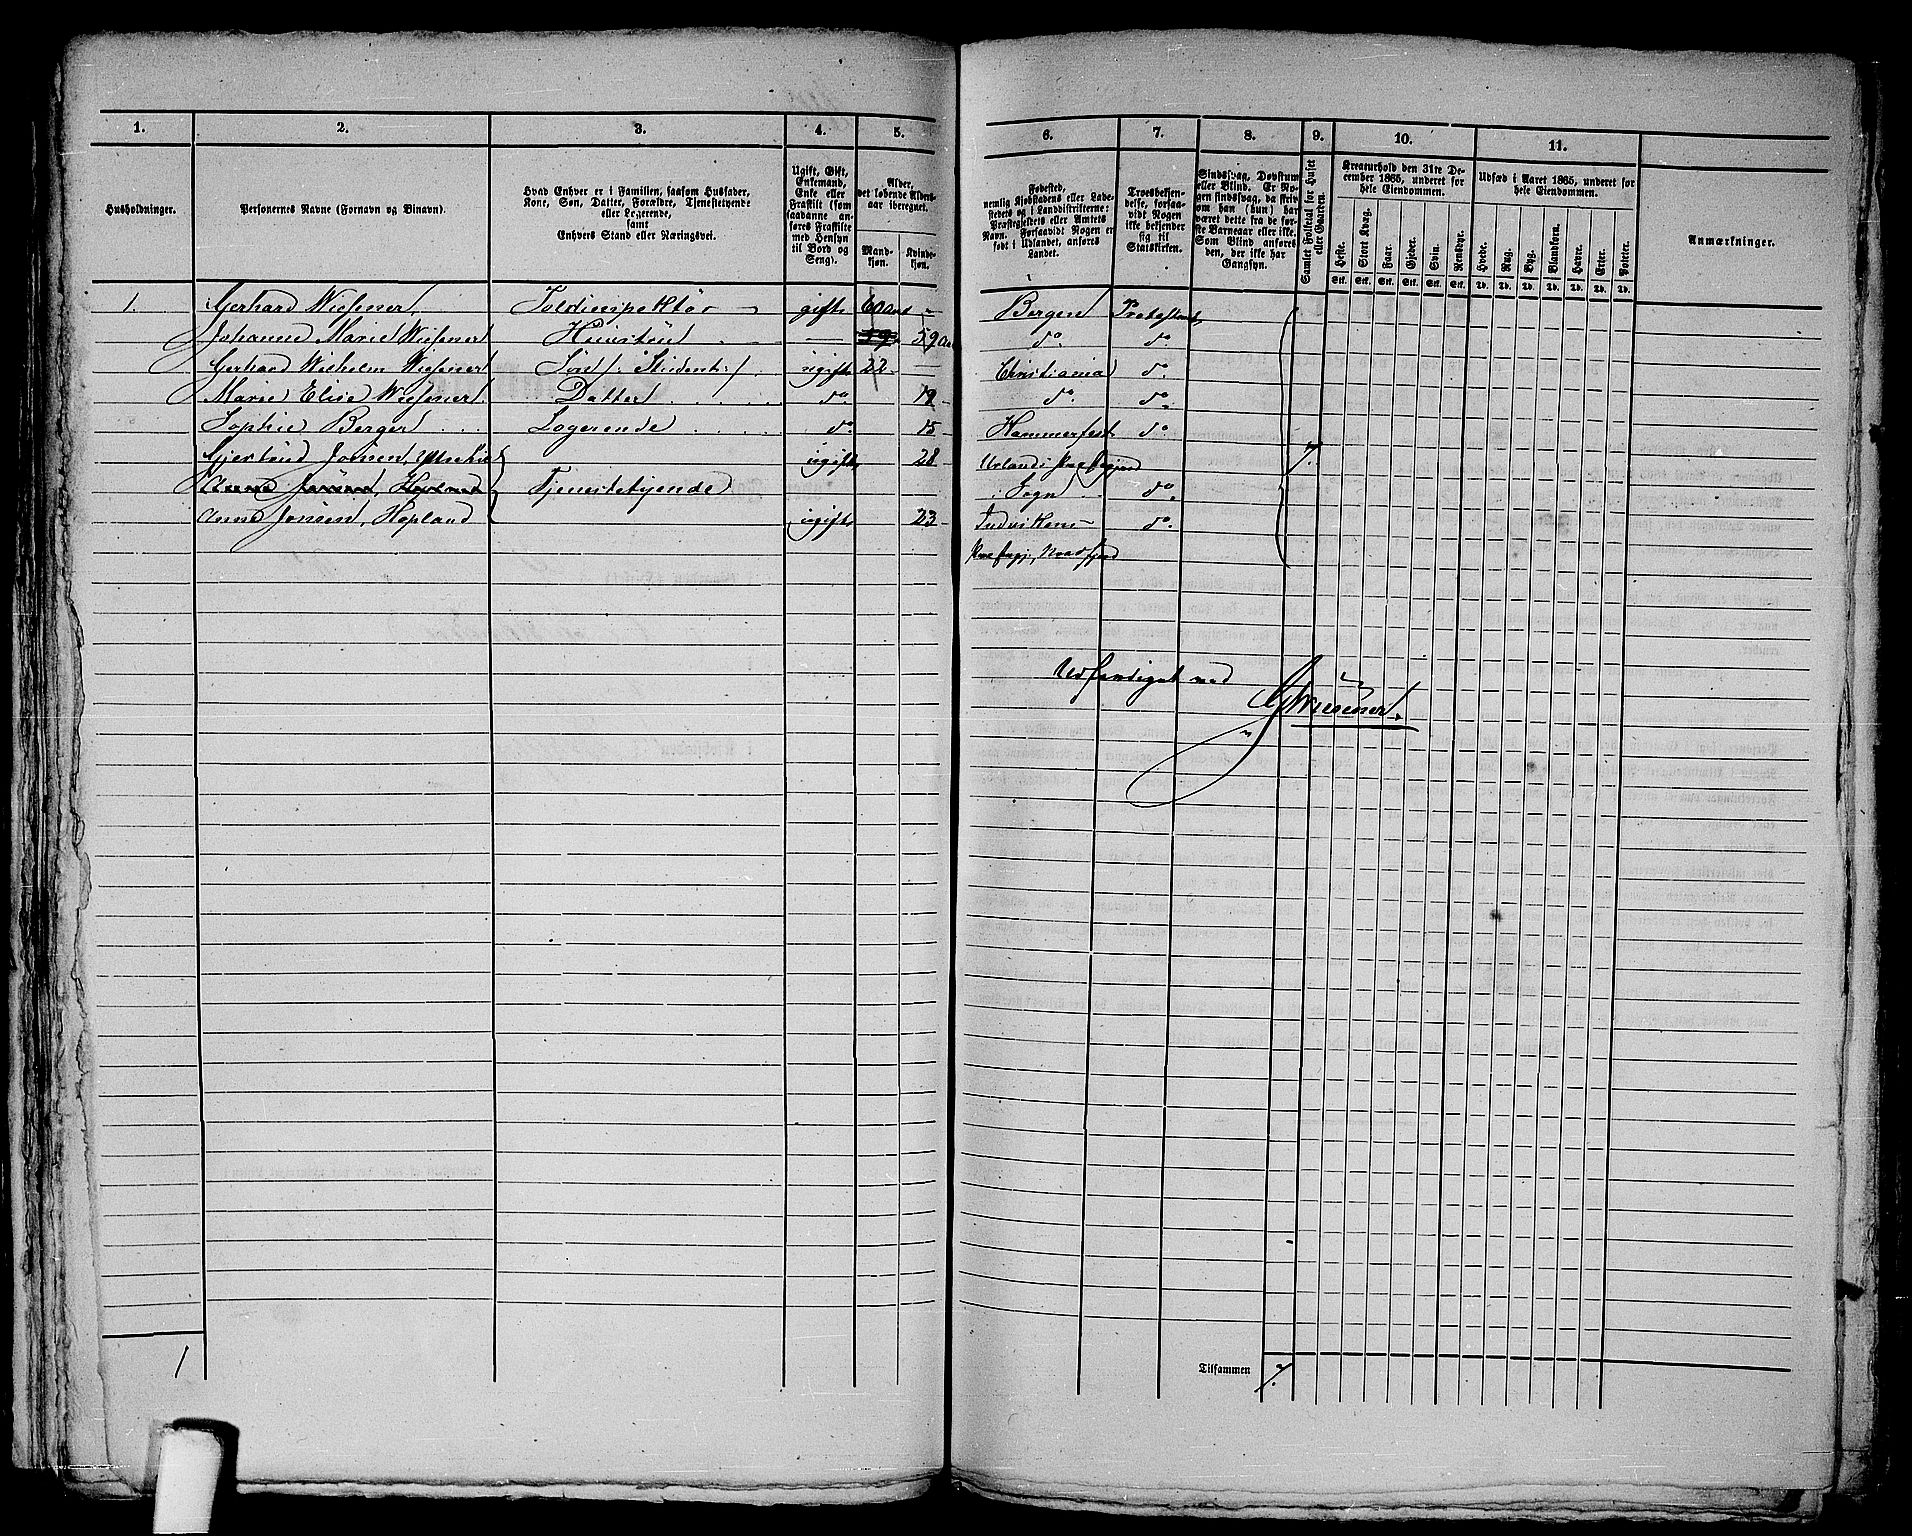 1. 2. 3. 4. 5. 6. 7. 8. 9. 10. 11.
Husholdninger.
Personernes Navne (Fornavn og Binavn).
Hvad Enhver er i Familien, saasom Husfader,
Kone, Søn, Datter, Forældre, Tjenestetyende
eller Logerende,
samt
Enhvers Stand eller Næringsvei.
Ugift, Gift,
Enkemand,
Enke eller
Fraskilt (som
saadanne an-
føres Fraskilte
med Hensyn
til Bord og
Seng).
Alder,
det løbende Alders-
aar iberegnet.
Mand-
kjøn.
Kvinde-
kjøn.
Fødested,
nemlig Kjøbstadens eller Lade-
stedets og i Landdistrikterne:
Præstegjeldets eller Amtets
Navn. Forsaavidt Nogen er
født i Udlandet, anføres
Landet.
Troesbekjen-
delse, forsaa-
vidt Nogen
ikke bekjender
sig til
Statskirken.
Sindssvag, Døvstum
eller Blind. Er No-
gen sindssvag, da skriv
om han (hun) har
været dette fra de før-
ste Barneaar eller ikke.
Som Blind anføres
den, der ikke har
Gangsyn.
Samlet Folketal for Huset
eller Gaarden.
Kreaturhold den 31te De-
cember 1865, underet for
hele Eiendommen.
Heste. Stort Kvæg. Faar. Gjeder. Svin. Rensdyr.
Stk. Stk. Stk. Stk. Stk. Stk.
Udsæd i Aaret 1865, underet for
hele Eiendommen.
Hvede. Rug. Byg. Blandkorn. Havre. Erter. Poteter.
Td. Td. Td. Td. Td. Td. Td.
Anmærkninger.
1. Gerhard Wiesener, Toldinspektör gift 60 Bergen Protestant
Johanne Marie Wiesener Huustru — 59 do. do.
Gerhard Wilhelm Wiesener Sön /: Student :/ ugift 22 — Christiania do.
Marie Elise Wiesener Datter do. 19 do. do.
Sophie Berger Logerende do. 15 Hammerfest do.
Gjertrud Jonsen, ugift 28 Urlands Præstegjeld 7.
Tjenestetyende i Sogn do.
Anne Jonsen, Hopland ugift 23 Indvikens do.
Præstegj. Nordfjord
Udfærdiget ved
GWiesener
1
Tilsammen 7.